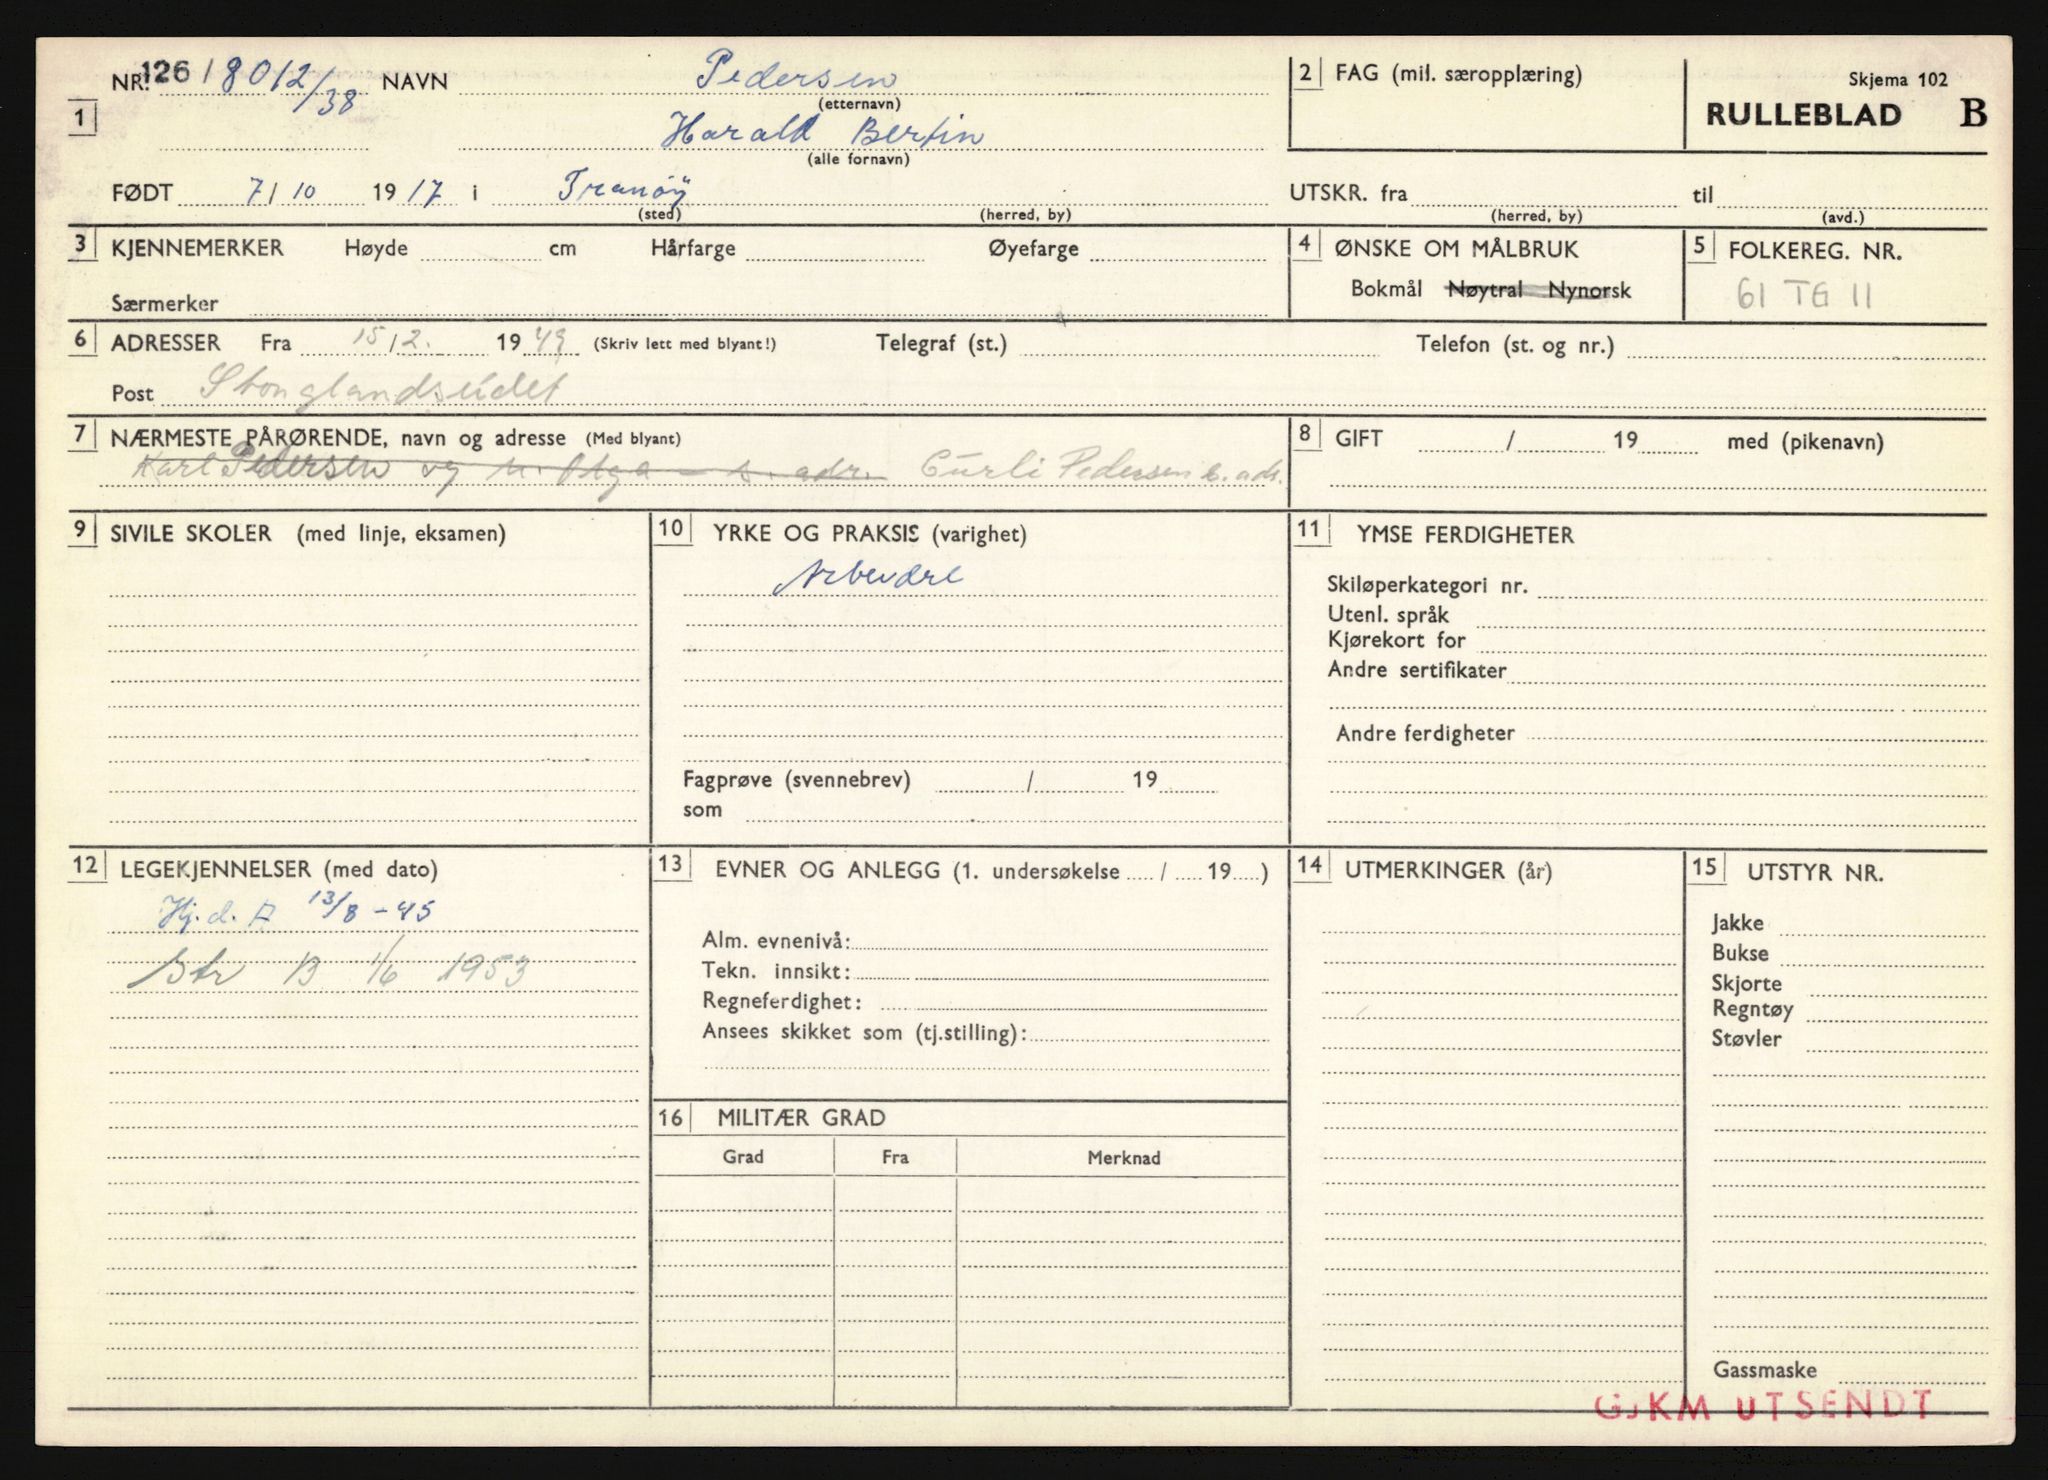 NR. 126/8012/38 NAVN Pedersen
(etternavn)
1
Harald Bertin
(alle fornavn)
FØDT 7/10 1917 i Tranöy
(sted) (herred, by)
2 FAG (mil. særopplæring)
Skjema 102
RULLEBLAD B
UTSKR. fra til
(herred, by) (avd.)
3 KJENNEMERKER Høyde cm Hårfarge Øyefarge
Særmerker
4 ØNSKE OM MÅLBRUK
Bokmål Nøytral Nynorsk
5 FOLKEREG. NR.
61 TG 11
6 ADRESSER Fra 15/2. 1949 (Skriv lett med blyant!) Telegraf (st.) Telefon (st. og nr.)
Post Stonglandseidet
7 NÆRMESTE PÅRØRENDE, navn og adresse (Med blyant)
Karl Pedersen og m. Olga - s. adr. Pedersen s. adr.
8 GIFT / 19 med (pikenavn)
9 SIVILE SKOLER (med linje, eksamen)
10 YRKE OG PRAKSIS (varighet)
Arbeider
Fagprøve (svennebrev) / 19
som
11 YMSE FERDIGHETER
Skiløperkategori nr.
Utenl. språk
Kjørekort for
Andre sertifikater
Andre ferdigheter
12 LEGEKJENNELSER (med dato)
Hj. d. A 13/8 - 45
Str B 1/6 1953
13 EVNER OG ANLEGG (1. undersøkelse / 19 )
Alm. evnenivå:
Tekn. innsikt:
Regneferdighet:
Ansees skikket som (tj.stilling):
16 MILITÆR GRAD
Grad Fra Merknad
14 UTMERKINGER (år)
15 UTSTYR NR.
Jakke
Bukse
Skjorte
Regntøy
Støvler
Gassmaske
GJKM UTSENDT